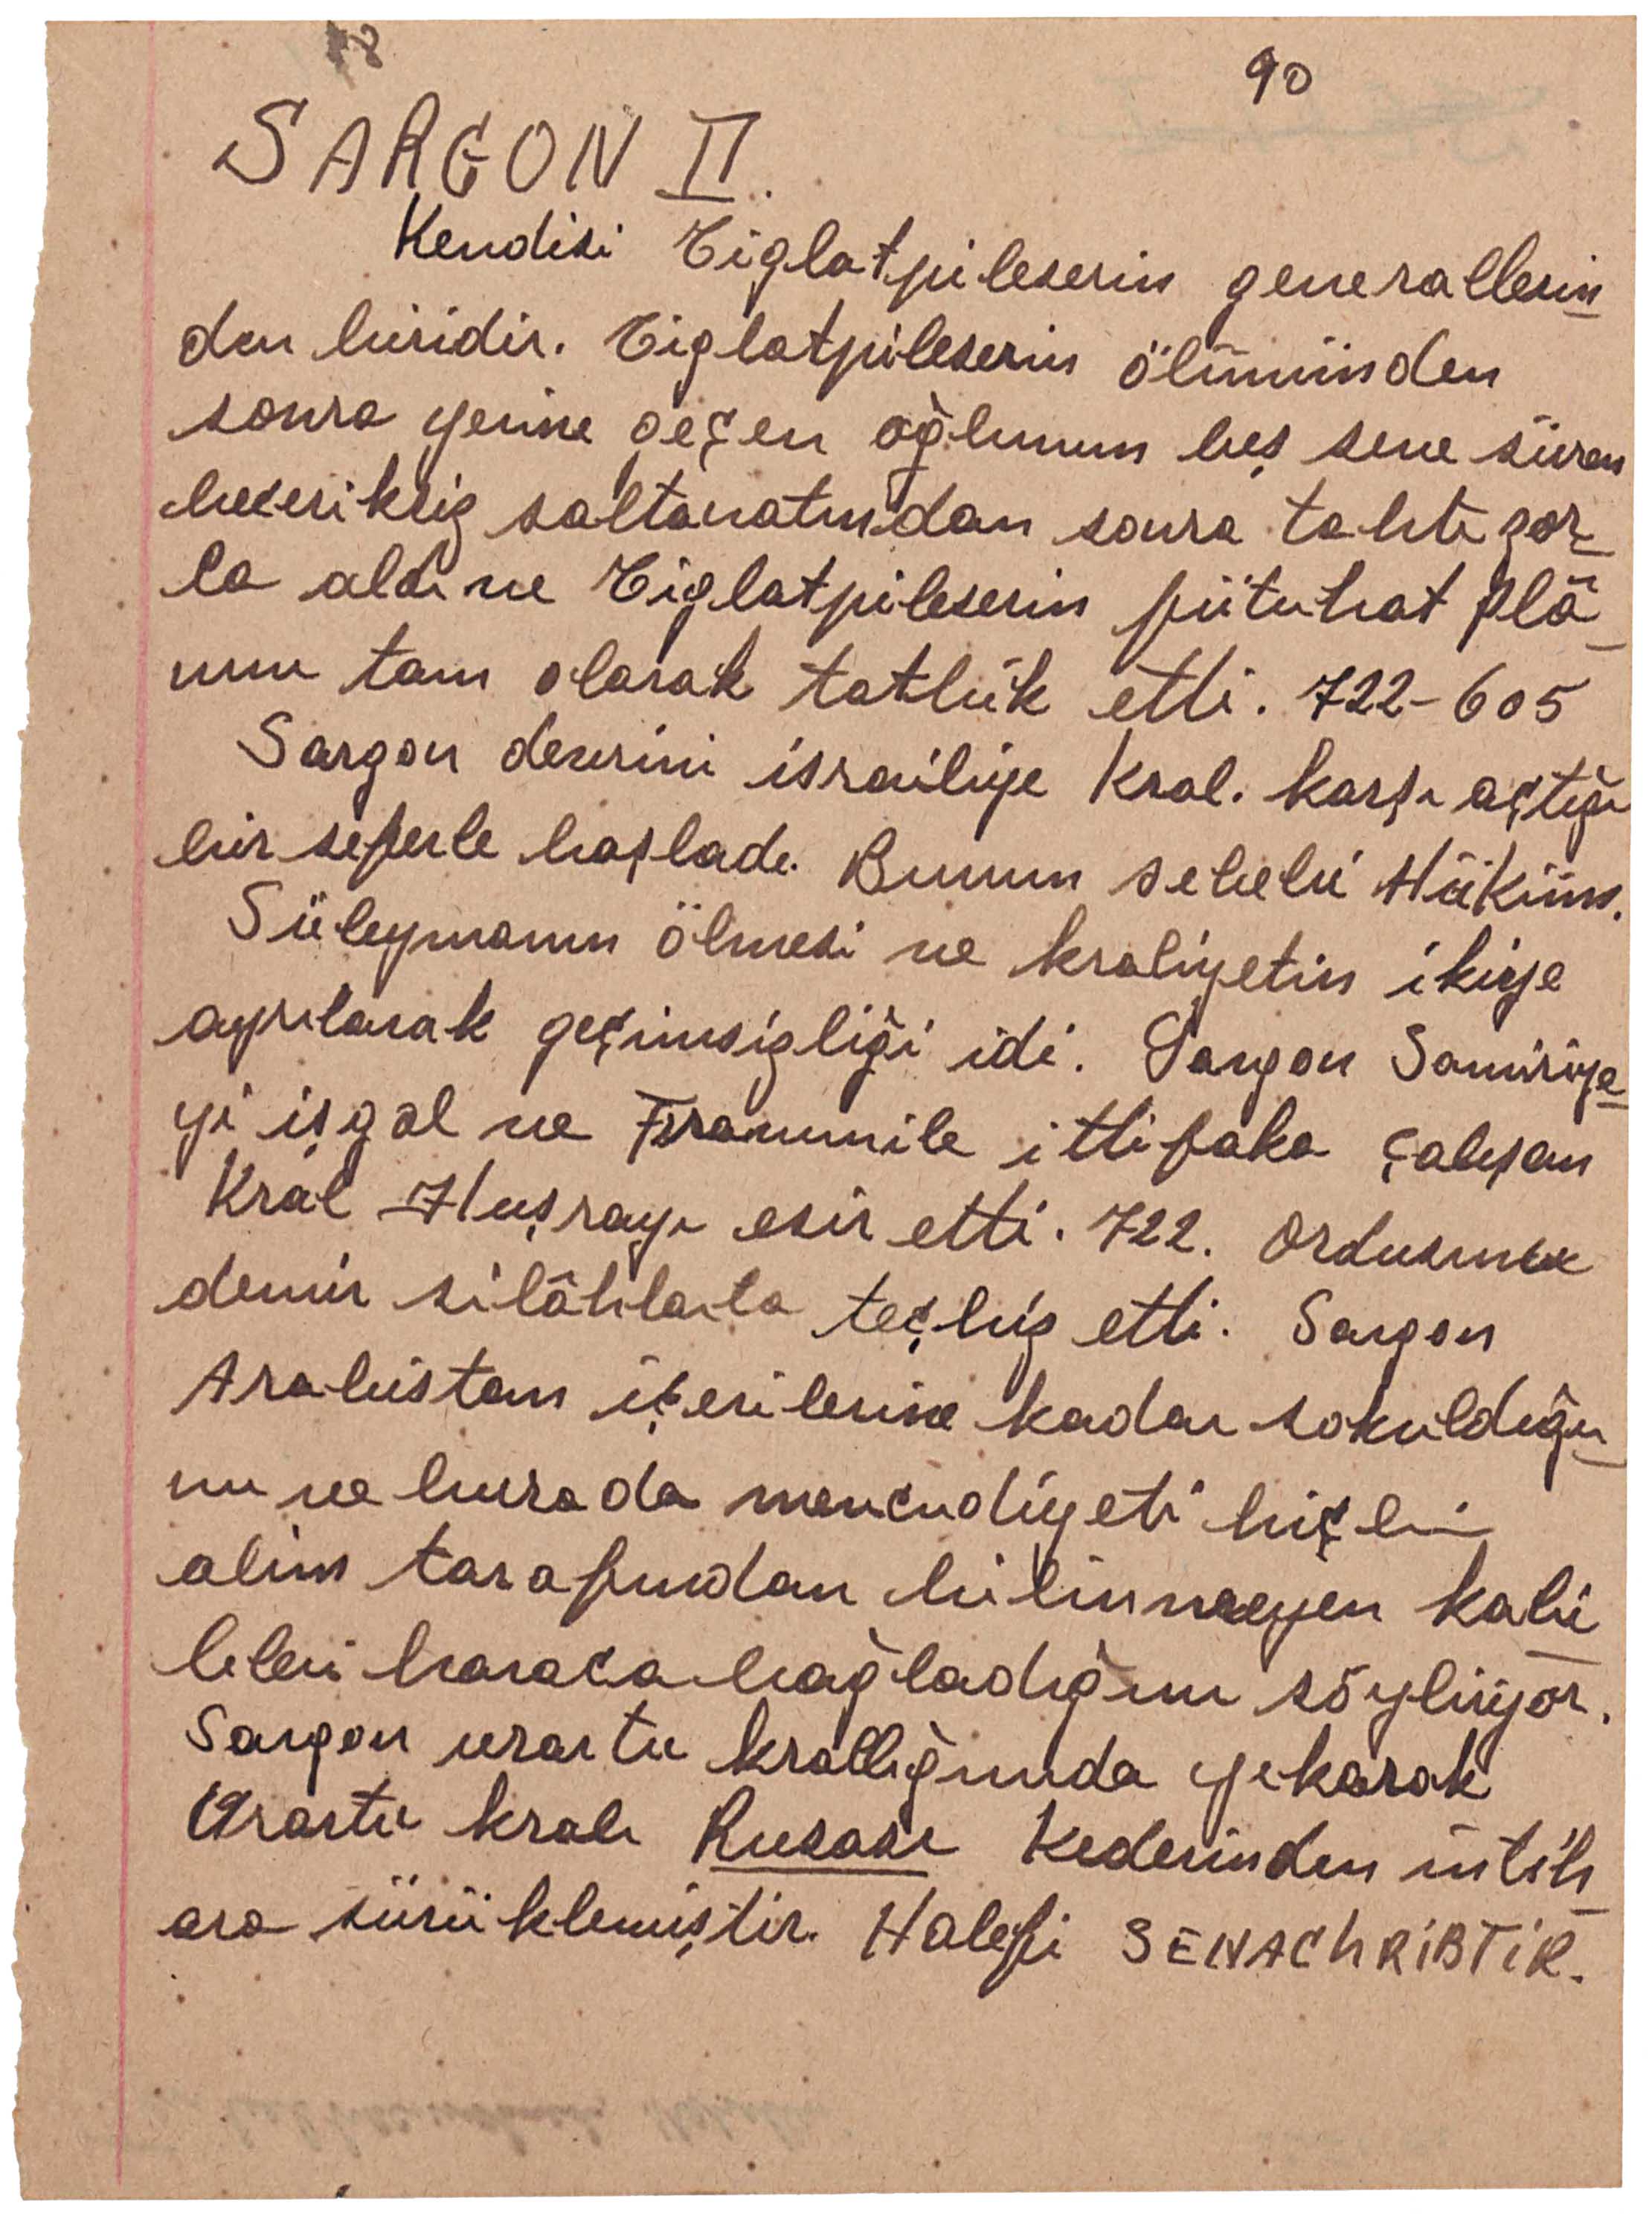 90
SARGON II.
Kendisi Tiglatpileserin generallerin
den biridir. Tiglatpileserin ölümünden
sonra yerine geçen oğlunun beş sene süren
beceriksiz saltanatından sonra tahtı zor
la aldı ve Tiglatpileserin fütuhat plâ
nını tam olarak tatbik etti. 722-605
Sargon devrini israiliye Kral. karşı açtığı
bir seferle başladı. Bunun sebebi Hüküm.
Süleymanın ölmesi ve kraliyetin ikiye
ayrılarak geçimsizliği idi. Sargon Samiriye
yi işgal ve Firavunile ittifaka çalışan
Kral Huşrayı esir etti. 722. Ordusunu
demir silâhlarla teçhiz etti. Sargon
Arabistan içerilerine kadar sokulduğu
nu ve burada mevcudiyeti hiçbir
alim tarafından bilinmeyen kabi
leleri haraca bağladığını söyliyor.
Sargon urartu krallığınıda yıkarak
Urartu kralı Rusası kederinden intih
ara sürüklemiştir. Halefi SENACHRİBTİR.